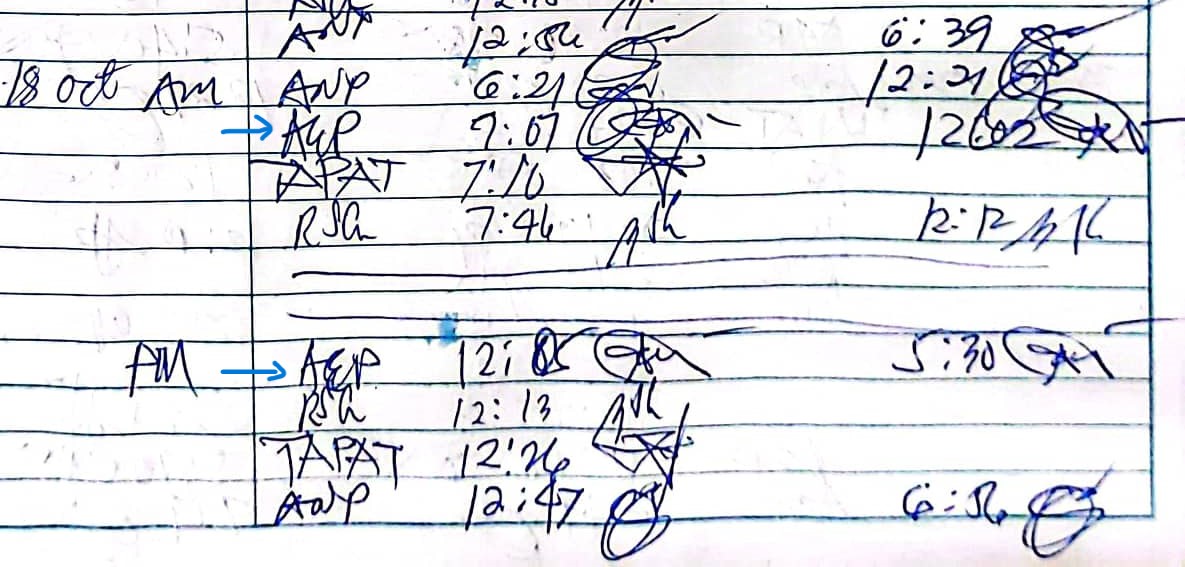 12:54 6:39
18 oct AM ANP 6:21 12:21
→ AEP 7:07 12:02
TAPAT 7:10
RSG 7:46 12:12
AM → AEP 12:05 5:30
RSG 12:13
TAPAT 12:26
ANP 12:47 6:56